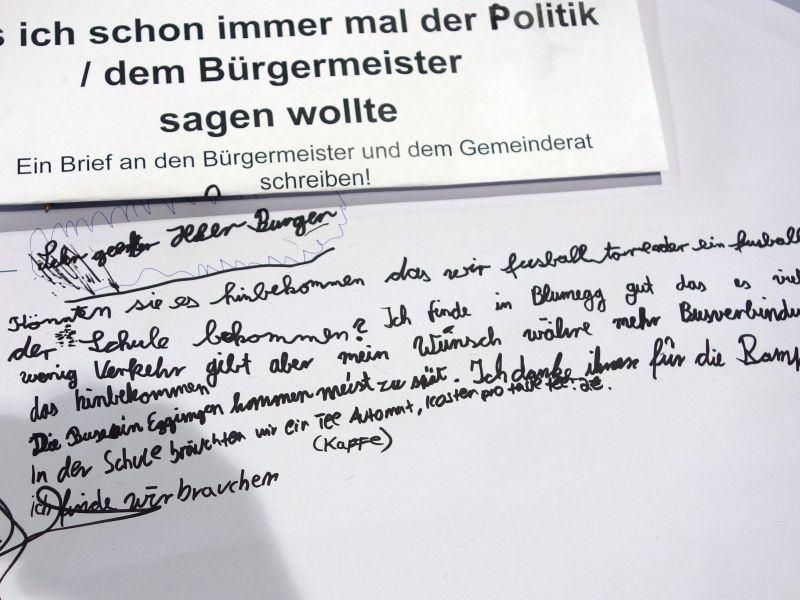 s ich schon immer mal der Politik
/ dem Bürgermeister
sagen wollte
Ein Brief an den Bürgermeister und dem Gemeinderat
schreiben!
Sehr Herr Burger
Könnten sie es hinbekommen das wir fussball ein fussball
der Schule bekommen? Ich finde in Blumegg gut das es viel
wenig Verkehr gibt aber mein Wunsch währe mehr Busverbindu
das hinbekommen
Die Buse in Eggingen kommen meist zu spät. Ich danke ihnen für die Ramp
In der Schule bräuchten wir ein Tee Automat, kosten pro tasse tee: 2€.
(Kaffe)
ich finde wir brauchen